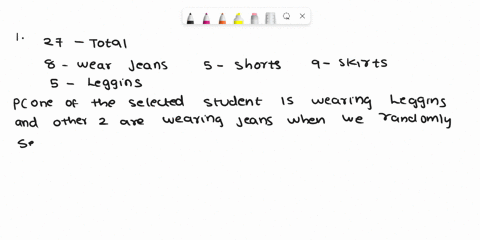 1. 27 - Total
8 - wear Jeans 5 - shorts 9 - skirts
5 - Leggins
P(one of the selected student is wearing Leggins
and other 2 are wearing jeans when we randomly
se